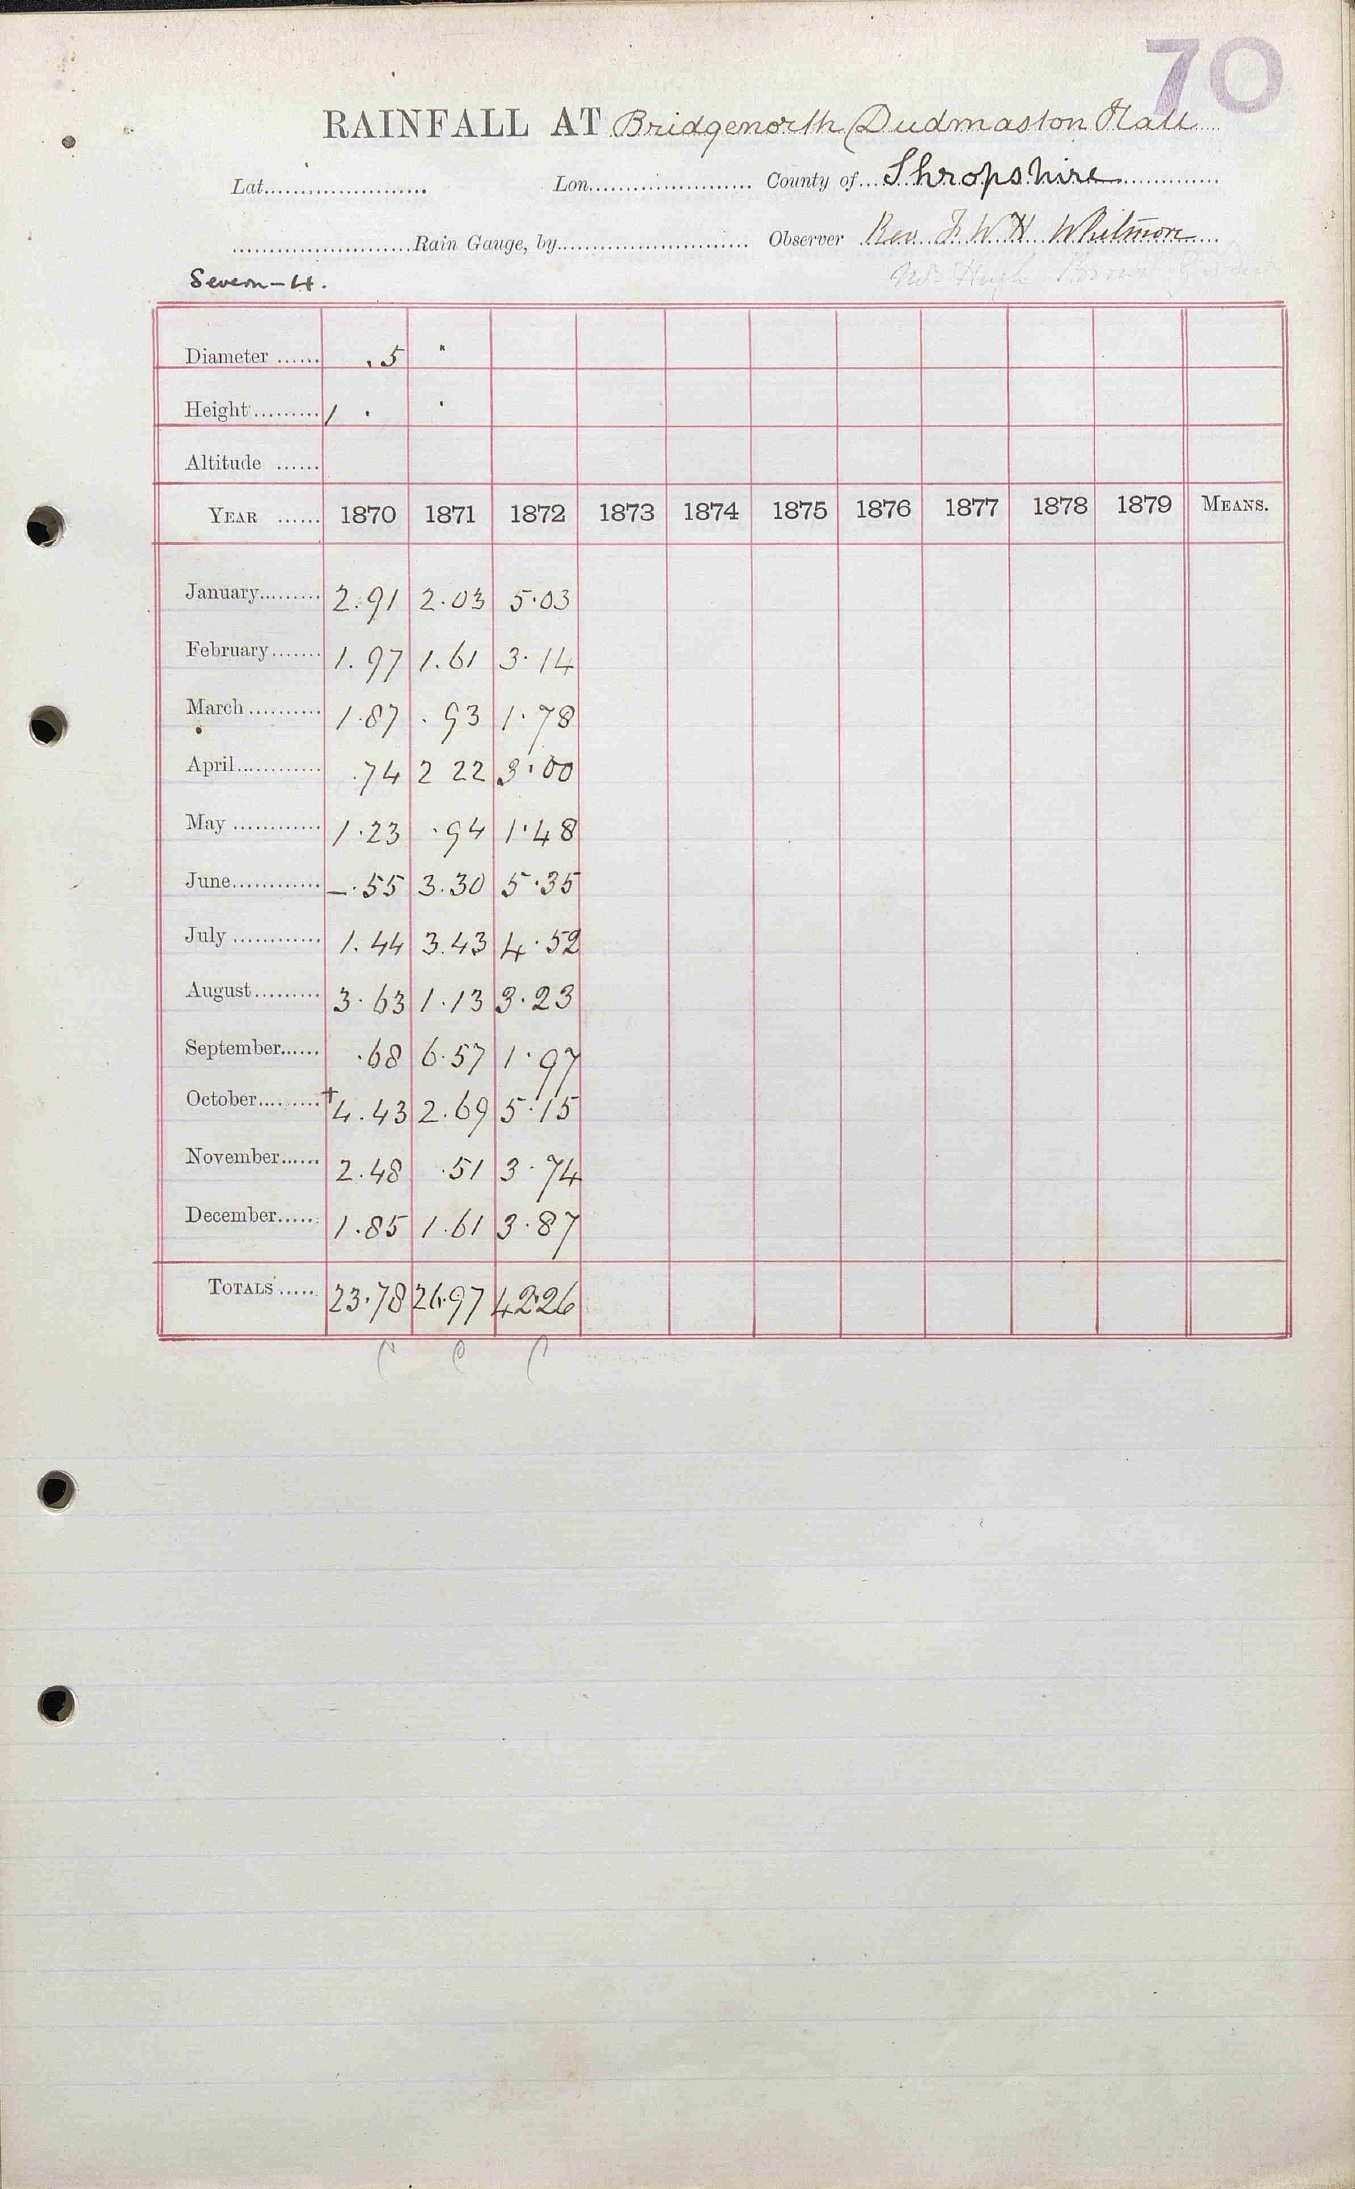 70
RAINFALL AT Bridgenorth (Dudmaston Hall
Lat. Lon. County of Shropshire
Rain Gauge, by Observer Rev. F W H Whitmore
Severn-4.
Mr Hugh Brown
Diameter .5 "
Height 1 . .
Altitude
YEAR 1870 1871 1872 1873 1874 1875 1876 1877 1878 1879 MEANS.
January 2.91 2.03 5.03
February 1.97 1.61 3.14
March 1.87 .93 1.78
April .74 2 22 3.00
May 1.23 .94 1.48
June -.55 3.30 5.35
July 1.44 3.43 4.52
August 3.63 1.13 3.23
September .68 6.57 1.97
October +4.43 2.69 5.15
November 2.48 .51 3.74
December 1.85 1.61 3.87
TOTALS 23.78 26.97 42.26